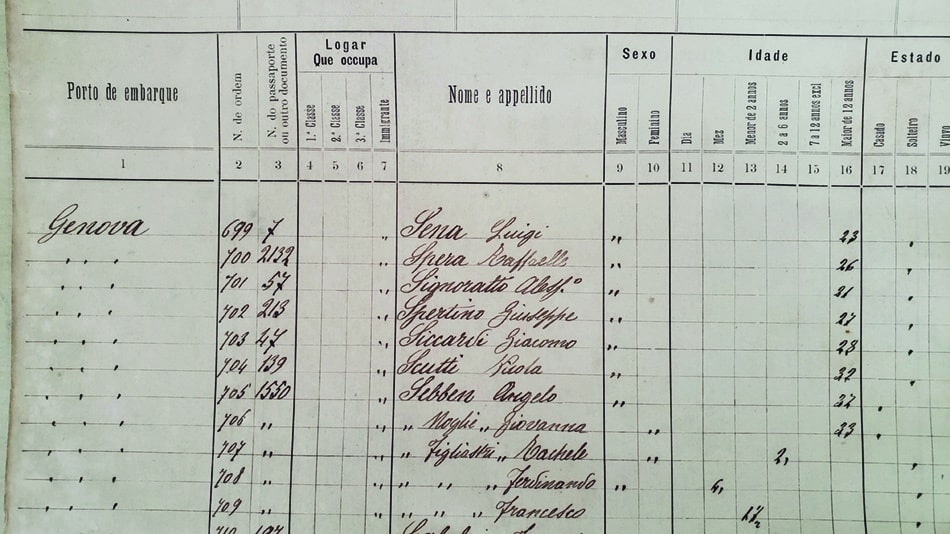 Porto de embarque
N. de ordem
N. do passaporte ou outro documento
Logar
Que occupa
1.ª Classe
2.ª Classe
3.ª Classe
Immigrante
Nome e appellido
Sexo
Masculino
Feminino
Idade
Dia
Mez
Menor de 2 annos
2 a 6 annos
7 a 12 annos excl
Maior de 12 annos
Estado
Casado
Solteiro
Viuvo
1 2 3 4 5 6 7 8 9 10 11 12 13 14 15 16 17 18 19
Genova 699 7 „ Sena Luigi „ 23 ,
, , , 700 2132 „ Spera Raffaelle „ 26 ,
, , , 701 57 „ Signoratto Aless.º „ 21 ,
, , , 702 213 „ Spertino Giuseppe „ 27 ,
, , , 703 47 „ Siccardi Giacomo „ 28 ,
, , , 704 139 „ Scutti „ 32 ,
, , , 705 1550 „ Sebben Angelo „ ,
, , , 706 „ „ „ Moglie „ Giovanna „ 23 ,
, , , 707 „ „ „ Figliastri „ Rachele „ 2, ,
, , , 708 „ „ „ „ „ Ferdinando „ ,
, , , 709 „ „ „ „ „ Francesco ,
710